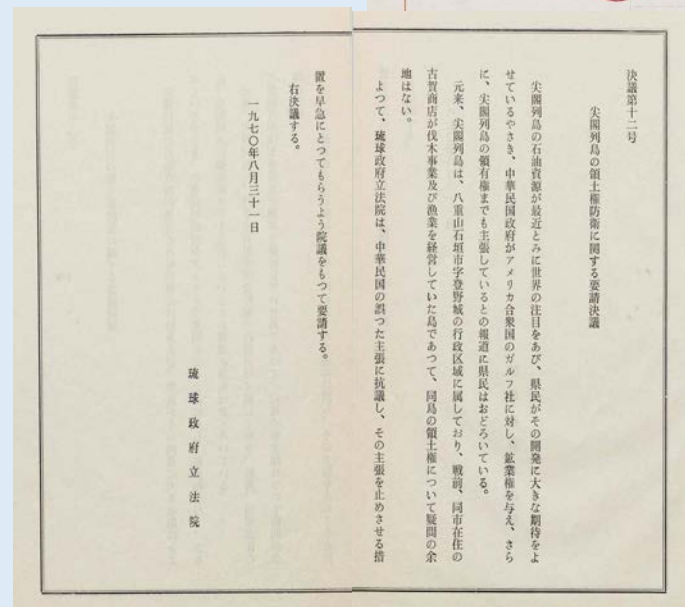 決議第十二号
尖閣列島の領土権防衛に関する要請決議
尖閣列島の石油資源が最近とみに世界の注目をあび、県民がその開発に大きな期待をよ
せているやさき、中華民国政府がアメリカ合衆国のガルフ社に対し、鉱業権を与え、さら
に、尖閣列島の領有権までも主張しているとの報道に県民はおどろいている。
元来、尖閣列島は、八重山石垣市字登野城の行政区域に属しており、戦前、同市在住の
古賀商店が伐木事業及び漁業を経営していた島であつて、同島の領土権について疑問の余
地はない。
よつて、琉球政府立法院は、中華民国の誤つた主張に抗議し、その主張を止めさせる措
置を早急にとつてもらうよう院議をもつて要請する。
右決議する。
一九七〇年八月三十一日
琉球政府立法院